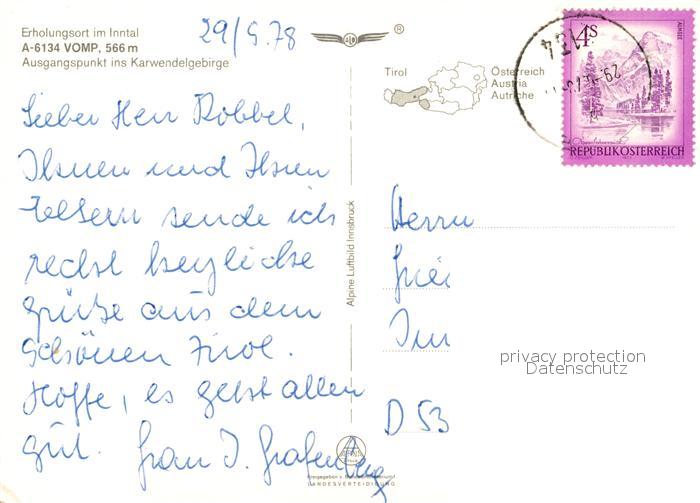 Erholungsort im Inntal
A-6134 VOMP, 566 m
Ausgangspunkt ins Karwendelgebirge
29/5.78
®
Tirol
Österreich
Austria
Autriche
4S
ALMSEE
REPUBLIK ÖSTERREICH
Lieber Herr Robbel,
Ihnen und Ihren
Eltern sende ich
recht herzliche
Grüße aus dem
schönen Tirol.
Hoffe, es geht allen
gut. Frau I. Grafenberg
Alpine Luftbild Innsbruck
Herrn
Im
D 53
privacy protection
Datenschutz
LANDESVERTEIDIGUNG